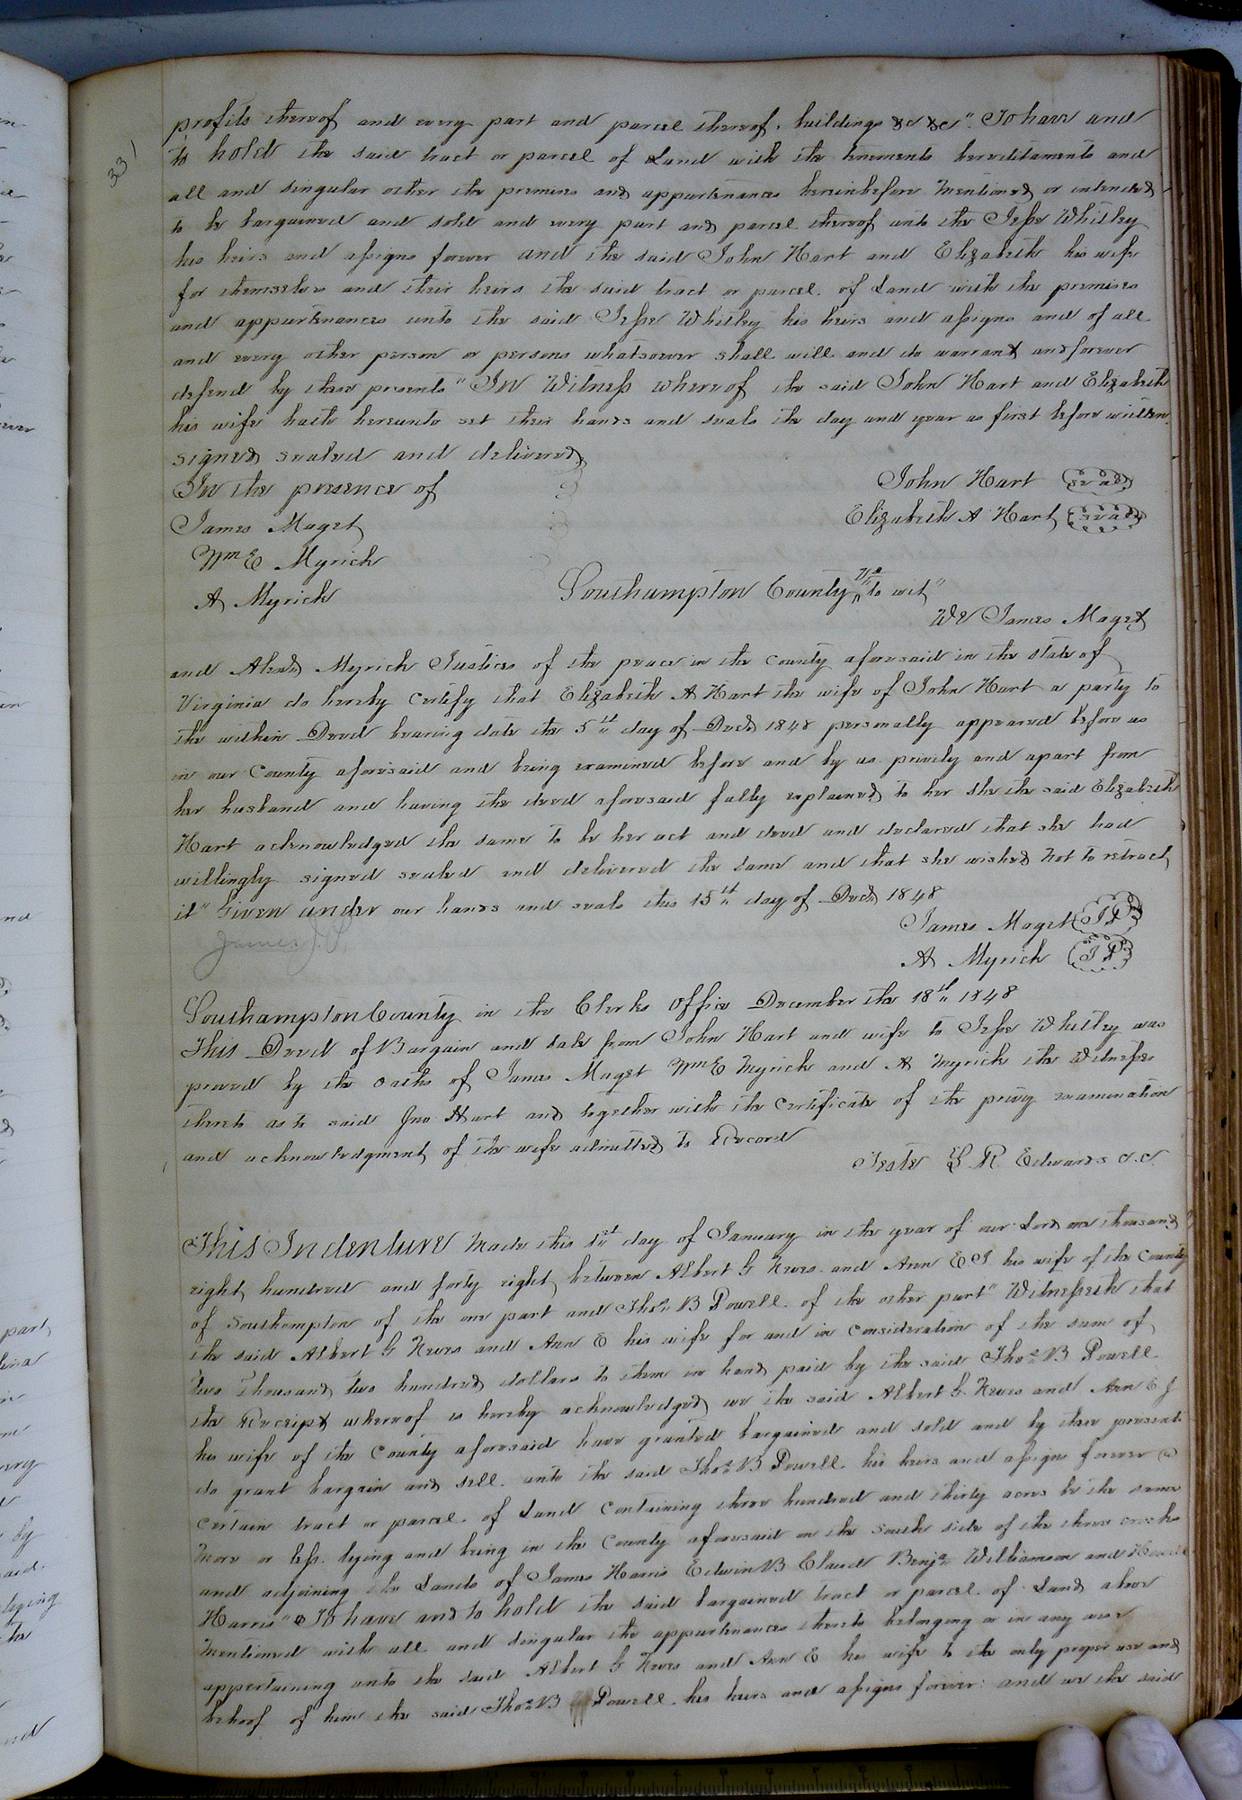 331
profits thereof and every part and parcel thereof, buildings &c &c". To have and
to hold the said tract or parcel of Land with the tenements hereditaments and
all and singular other the premises and appurtenances hereinbefore mentioned or intended
to be bargained and sold and every part and parcel thereof unto the Jesse Whitley
his heirs and assigns forever and the said John Hart and Elizabeth his wife
for themselves and their heirs the said tract or parcel of Land with the premises
and appurtenances unto the said Jesse Whitley his heirs and assigns and of all
and every other person or persons whatsoever shall will and do warrant and forever
defend by these presents" In Witness whereof the said John Hart and Elizabeth
his wife hath hereunto set their hands and seals the day and year as first before written
signed sealed and delivered
In the presence of John Hart (seal)
James Maget Elizabeth A Hart (seal)
Wm E Myrick
A Myrick Southampton County "to wit"
We James Maget
and Myrick Justices of the peace in the county aforesaid in the state of
Virginia do hereby certify that Elizabeth A Hart the wife of John Hart a party to
the within Deed bearing date the 5th day of Decr 1848 personally appeared before us
in our County aforesaid and being examined before and by us privily and apart from
her husband and having the deed aforesaid fully explained to her she the said Elizabeth
Hart acknowledged the same to be her act and deed and declared that she had
willingly signed sealed and delivered the same and that she wished not to retract
it" Given under our hands and seals this 15th day of Decr 1848
James Maget (JP)
James J.P.
A Myrick (JP)
Southampton County in the Clerks Office December the 18th 1848
This Deed of Bargain and sale from John Hart and wife to Jesse Whitley was
proved by the oaths of James Maget Wm E Myrick and A Myrick the Witnesses
thereto as to said Jno Hart and together with the certificate of the privy examination
and acknowledgment of the wife admitted to Record
Teste L R Edwards c.c.
This Indenture Made this 1st day of January in the year of our Lord one thousand
eight hundred and forty eight, between Albert G Kews and Ann E J his wife of the County
of Southampton of the one part and Thos. B Powell of the other part" Witnesseth that
the said Albert G Kews and Ann E his wife for and in consideration of the sum of
two Thousand two hundred dollars to them in hand paid by the said Thos. B Powell
the Receipt whereof is hereby acknowledged we the said Albert G Kews and Ann E J
his wife of the County aforesaid have granted bargained and sold and by these presents
do grant bargain and sell unto the said Thos. B Powell his heirs and assigns forever a
certain tract or parcel of Land containing three hundred and thirty acres be the same
more or less lying and being in the County aforesaid on the south side of the three creeks
and adjoining the Lands of James Harris Edwin B Claud Benja. Williamson and
Harris" To have and to hold the said bargained tract or parcel of Land above
mentioned with all and singular the appurtenances thereto belonging or in any wise
appertaining unto the said Albert G Kews and Ann E his wife to the only proper use and
behoof of him the said Thos. B Powell his heirs and assigns forever: and we the said